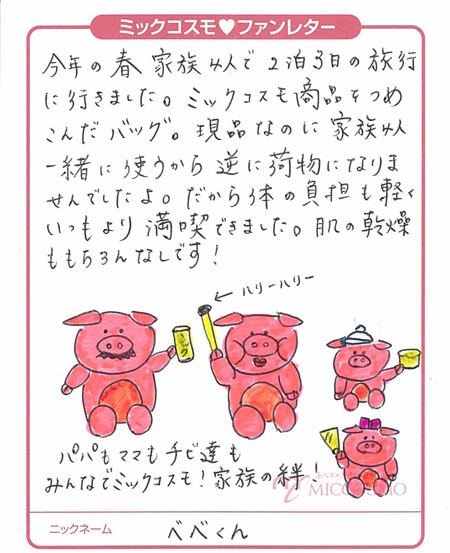 ミックコスモ♥ファンレター
今年の春家族4人で2泊3日の旅行
に行きました。ミックコスモ商品をつめ
こんだバッグ。現品なのに家族4人
一緒に使うから逆に荷物になりま
せんでしたよ。だから体の負担も軽く
いつもより満喫できました。肌の乾燥
ももちろんなしです!
←ハリーハリー
ミック
パパもママもチビ達も
みんなでミックコスモ!家族の絆!
MICCOSMO
ニックネーム
べべくん